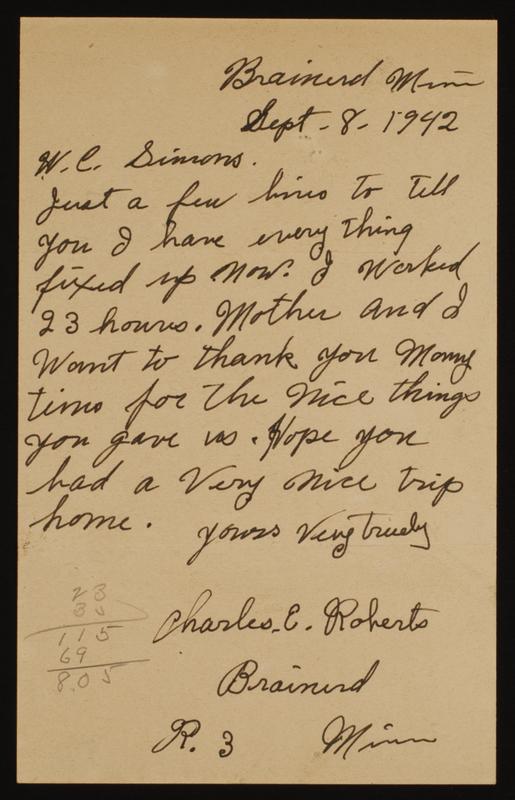 Brainerd Minn
Sept. 8. 1942
W. C. Simons.
Just a few lines to tell
you I have every thing
fixed up Now. I Worked
23 hours. Mother and I
Want to thank you Many
times for the Nice things
you gave us. Hope you
had a Very Nice trip
home.
yours Very truely
23
35
115
69
8.05
Charles. E. Roberts
Brainerd
R. 3 Minn